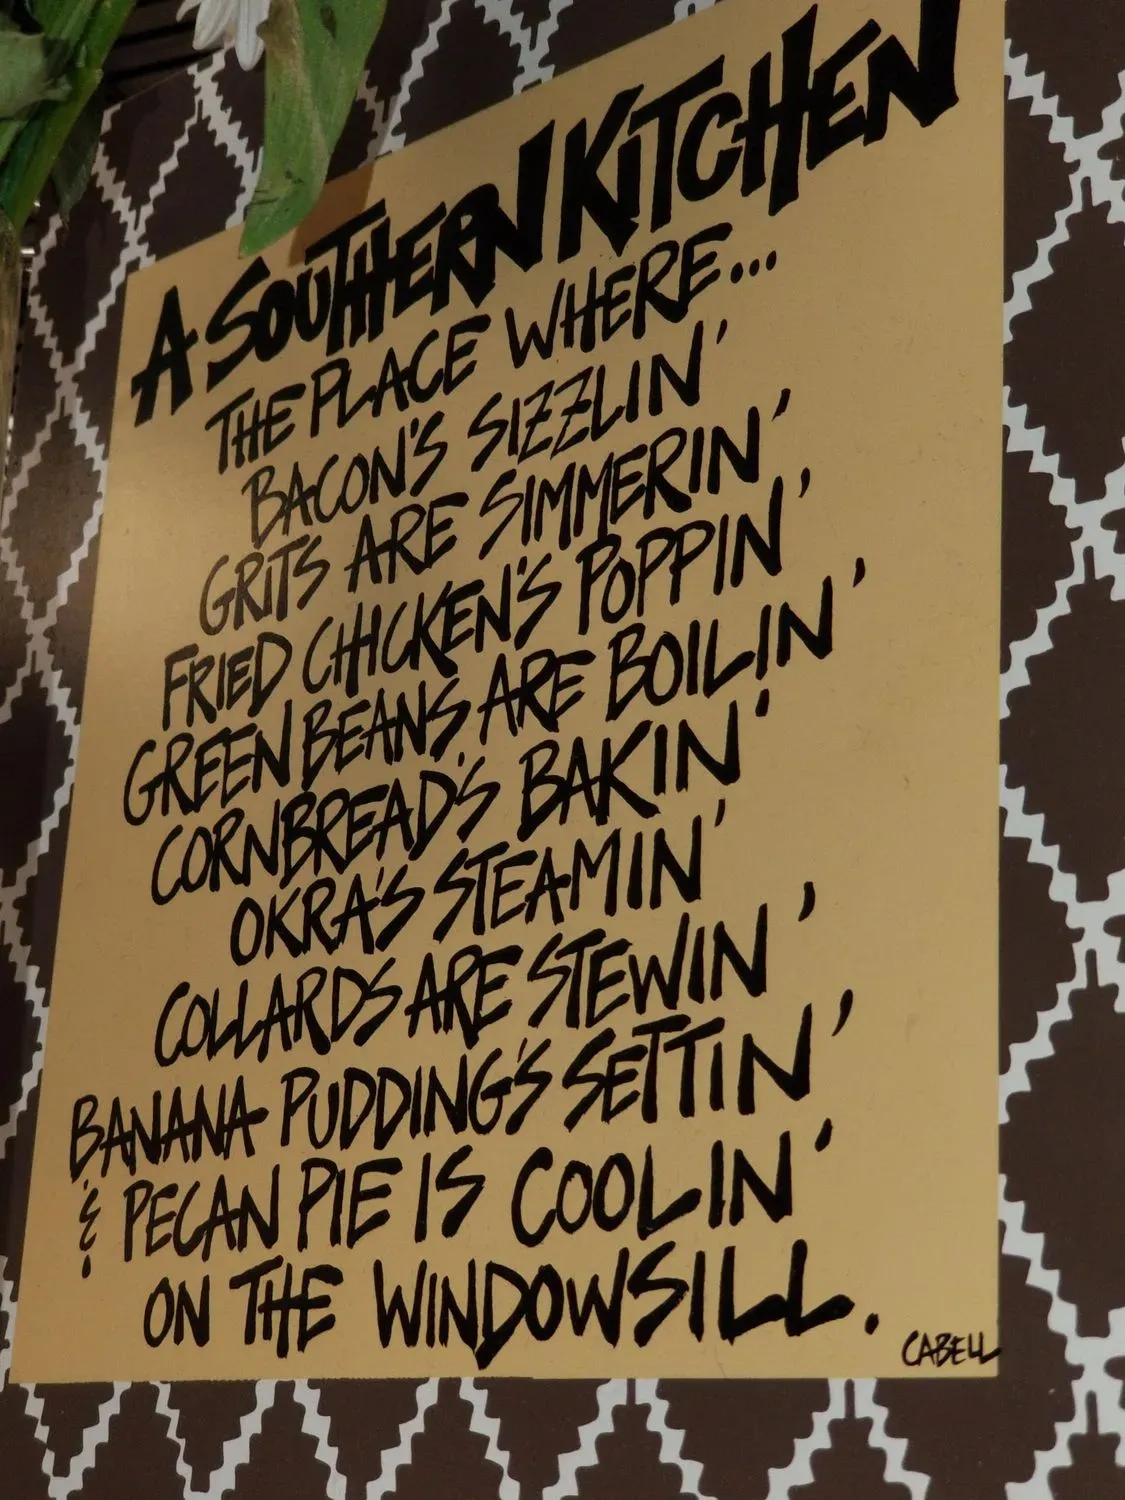 A SOUTHERN KITCHEN
THE PLACE WHERE...
BACON'S SIZZLIN'
GRITS ARE SIMMERIN'
FRIED CHICKEN'S POPPIN'
GREEN BEANS ARE BOILIN'
CORNBREAD'S BAKIN'
OKRA'S STEAMIN'
COLLARDS ARE STEWIN'
BANANA PUDDING'S SETTIN'
& PECAN PIE IS COOLIN'
ON THE WINDOWSILL.
CABELL